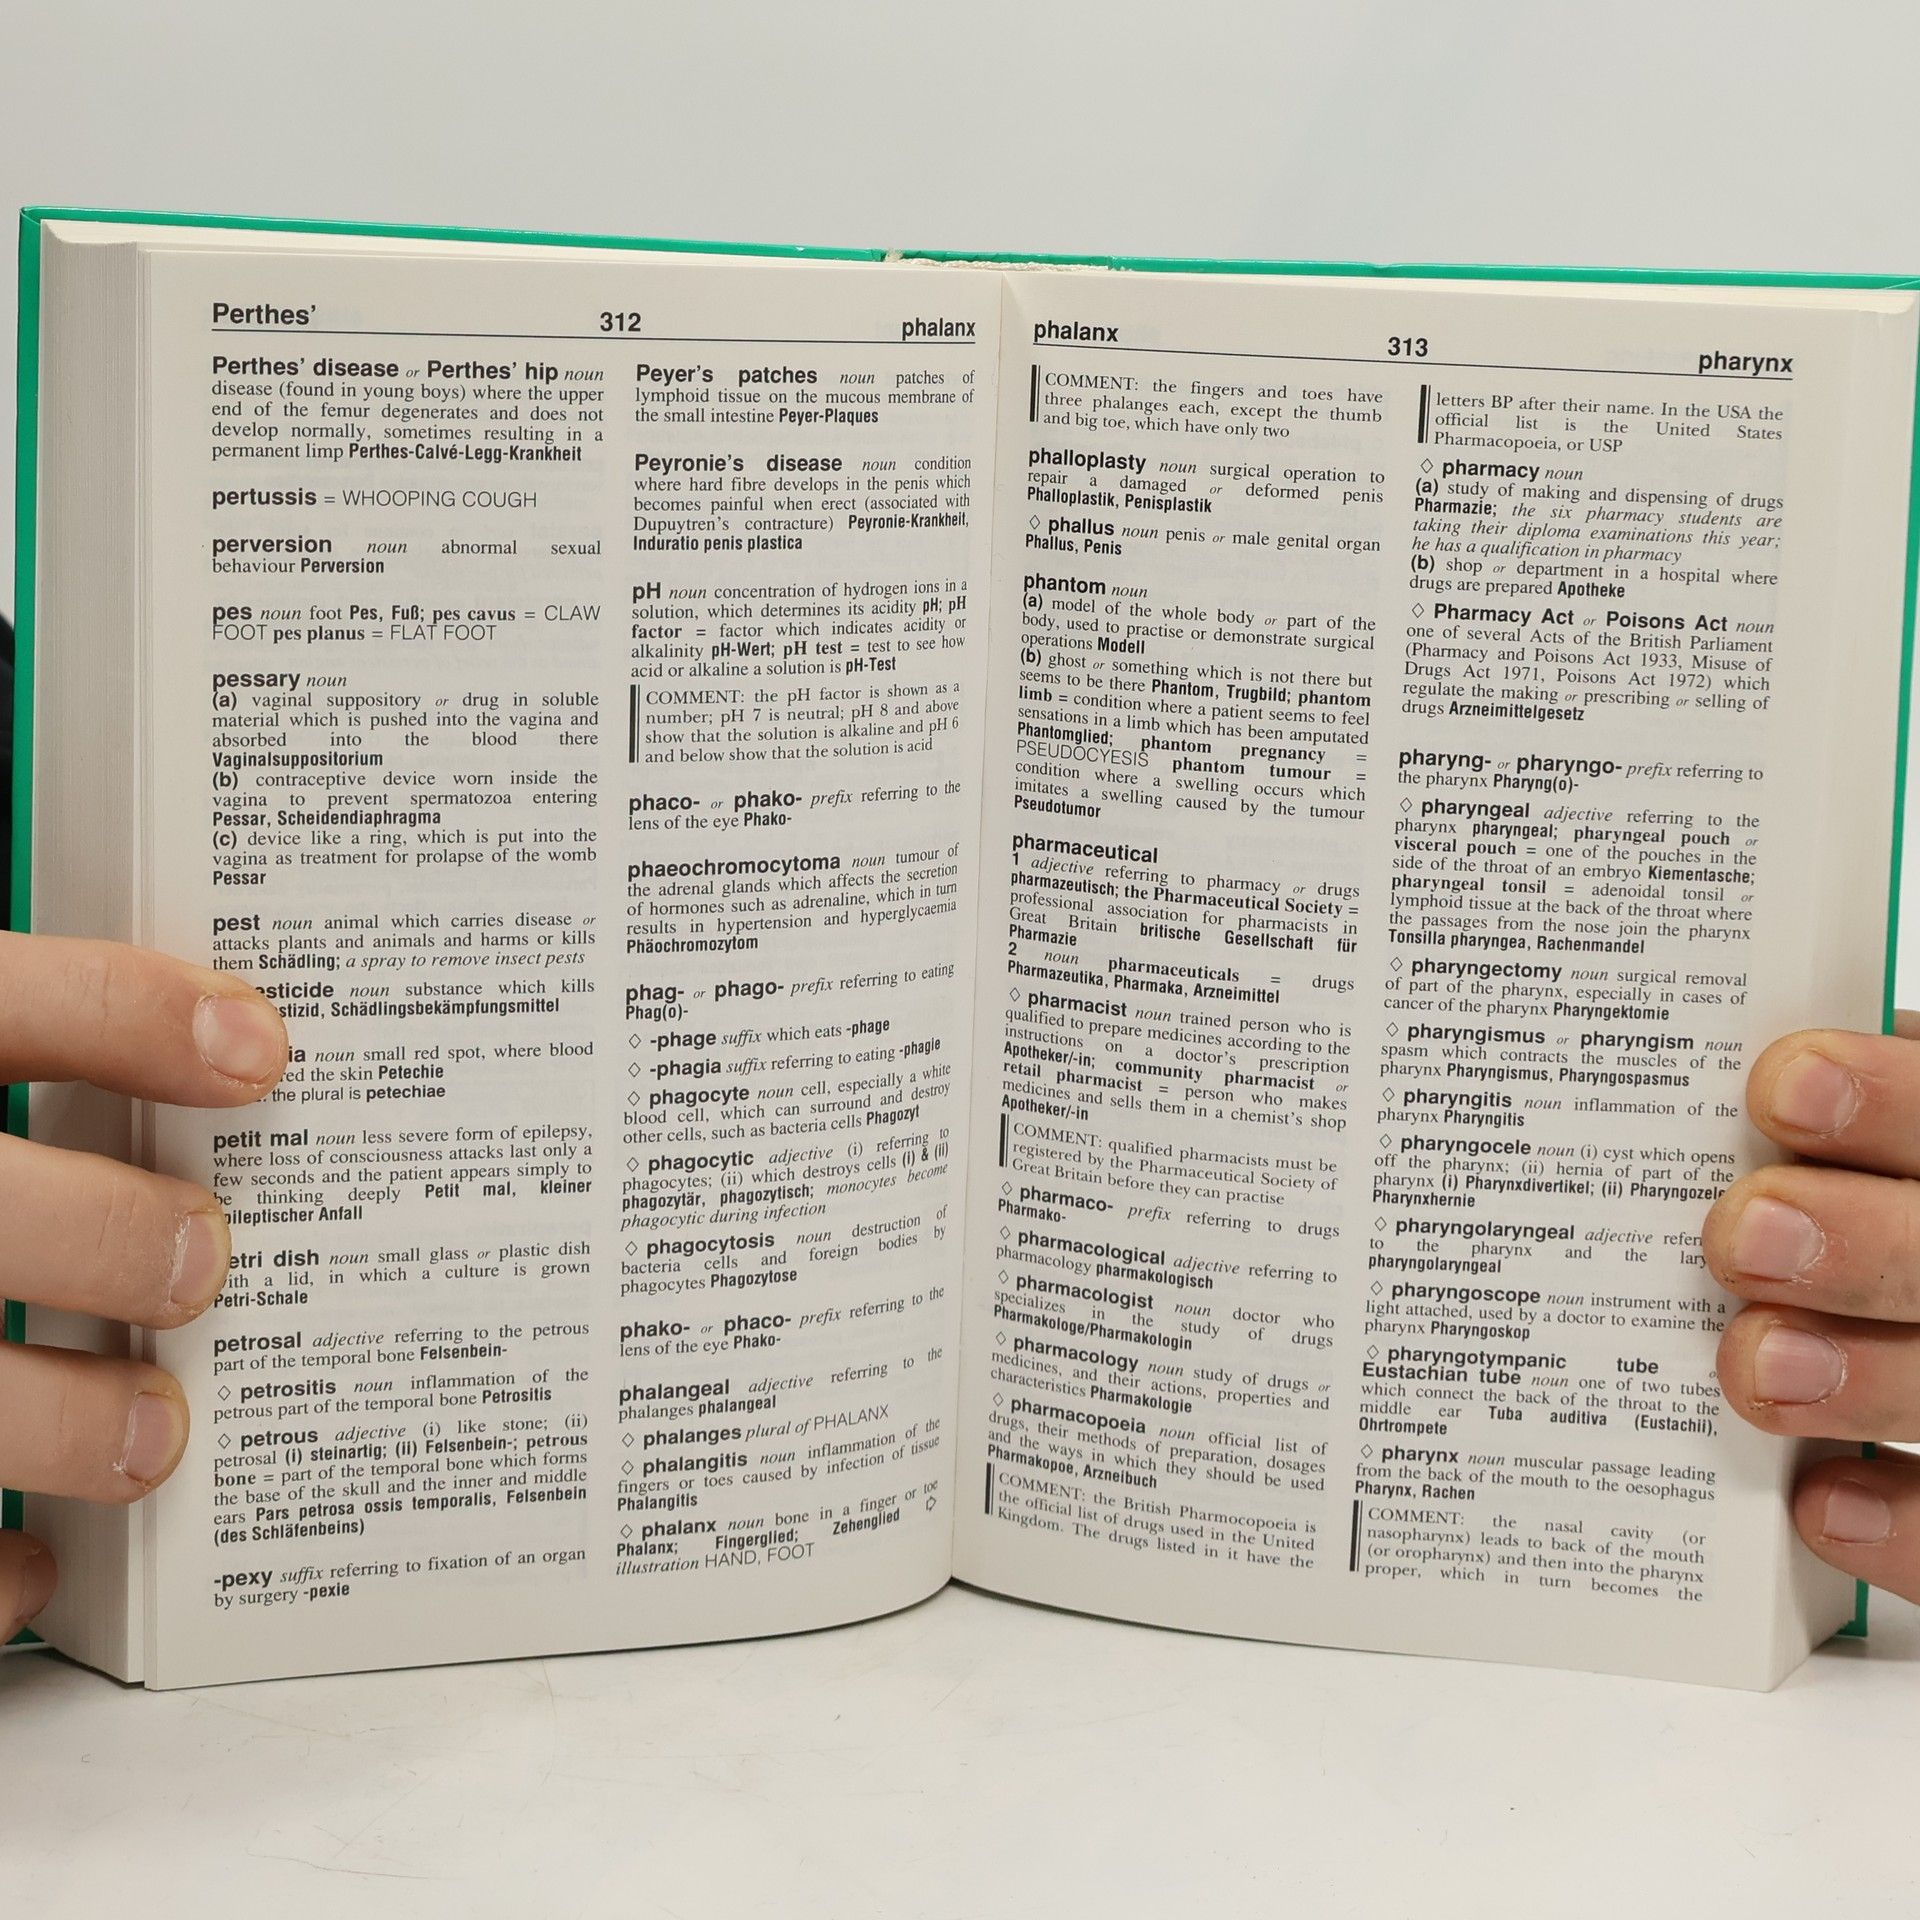 Perthes’ 312 phalanx
Perthes’ disease or Perthes’ hip noun
disease (found in young boys) where the upper
end of the femur degenerates and does not
develop normally, sometimes resulting in a
permanent limp Perthes-Calvé-Legg-Krankheit
pertussis = WHOOPING COUGH
perversion noun abnormal sexual
behaviour Perversion
pes noun foot Pes, Fuß; pes cavus = CLAW
FOOT pes planus = FLAT FOOT
pessary noun
(a) vaginal suppository or drug in soluble
material which is pushed into the vagina and
absorbed into the blood there
Vaginalsuppositorium
(b) contraceptive device worn inside the
vagina to prevent spermatozoa entering
Pessar, Scheidendiaphragma
(c) device like a ring, which is put into the
vagina as treatment for prolapse of the womb
Pessar
pest noun animal which carries disease or
attacks plants and animals and harms or kills
them Schädling; a spray to remove insect pests
esticide noun substance which kills
stizid, Schädlingsbekämpfungsmittel
ia noun small red spot, where blood
red the skin Petechie
the plural is petechiae
petit mal noun less severe form of epilepsy,
where loss of consciousness attacks last only a
few seconds and the patient appears simply to
be thinking deeply Petit mal, kleiner
pileptischer Anfall
etri dish noun small glass or plastic dish
ith a lid, in which a culture is grown
Petri-Schale
petrosal adjective referring to the petrous
part of the temporal bone Felsenbein-
◇ petrositis noun inflammation of the
petrous part of the temporal bone Petrositis
◇ petrous adjective (i) like stone; (ii)
petrosal (i) steinartig; (ii) Felsenbein-; petrous
bone = part of the temporal bone which forms
the base of the skull and the inner and middle
ears Pars petrosa ossis temporalis, Felsenbein
(des Schläfenbeins)
-pexy suffix referring to fixation of an organ
by surgery -pexie
Peyer’s patches noun patches of
lymphoid tissue on the mucous membrane of
the small intestine Peyer-Plaques
Peyronie’s disease noun condition
where hard fibre develops in the penis which
becomes painful when erect (associated with
Dupuytren’s contracture) Peyronie-Krankheit,
Induratio penis plastica
pH noun concentration of hydrogen ions in a
solution, which determines its acidity pH; pH
factor = factor which indicates acidity or
alkalinity pH-Wert; pH test = test to see how
acid or alkaline a solution is pH-Test
COMMENT: the pH factor is shown as a
number; pH 7 is neutral; pH 8 and above
show that the solution is alkaline and pH 6
and below show that the solution is acid
phaco- or phako- prefix referring to the
lens of the eye Phako-
phaeochromocytoma noun tumour of
the adrenal glands which affects the secretion
of hormones such as adrenaline, which in turn
results in hypertension and hyperglycaemia
Phäochromozytom
phag- or phago- prefix referring to eating
Phag(o)-
◇ -phage suffix which eats -phage
◇ -phagia suffix referring to eating -phagie
◇ phagocyte noun cell, especially a white
blood cell, which can surround and destroy
other cells, such as bacteria cells Phagozyt
◇ phagocytic adjective (i) referring to
phagocytes; (ii) which destroys cells (i) & (ii)
phagozytär, phagozytisch; monocytes become
phagocytic during infection
◇ phagocytosis noun destruction of
bacteria cells and foreign bodies by
phagocytes Phagozytose
phako- or phaco- prefix referring to the
lens of the eye Phako-
phalangeal adjective referring to the
phalanges phalangeal
◇ phalanges plural of PHALANX
◇ phalangitis noun inflammation of the
fingers or toes caused by infection of tissue
Phalangitis
◇ phalanx noun bone in a finger or toe
Phalanx; Fingerglied; Zehenglied ⇨
illustration HAND, FOOT
phalanx 313 pharynx
COMMENT: the fingers and toes have
three phalanges each, except the thumb
and big toe, which have only two
phalloplasty noun surgical operation to
repair a damaged or deformed penis
Phalloplastik, Penisplastik
◇ phallus noun penis or male genital organ
Phallus, Penis
phantom noun
(a) model of the whole body or part of the
body, used to practise or demonstrate surgical
operations Modell
(b) ghost or something which is not there but
seems to be there Phantom, Trugbild; phantom
limb = condition where a patient seems to feel
sensations in a limb which has been amputated
Phantomglied; phantom pregnancy =
PSEUDOCYESIS phantom tumour =
condition where a swelling occurs which
imitates a swelling caused by the tumour
Pseudotumor
pharmaceutical
1 adjective referring to pharmacy or drugs
pharmazeutisch; the Pharmaceutical Society =
professional association for pharmacists in
Great Britain britische Gesellschaft für
Pharmazie
2 noun pharmaceuticals = drugs
Pharmazeutika, Pharmaka, Arzneimittel
◇ pharmacist noun trained person who is
qualified to prepare medicines according to the
instructions on a doctor’s prescription
Apotheker/-in; community pharmacist or
retail pharmacist = person who makes
medicines and sells them in a chemist’s shop
Apotheker/-in
COMMENT: qualified pharmacists must be
registered by the Pharmaceutical Society of
Great Britain before they can practise
◇ pharmaco- prefix referring to drugs
Pharmako-
◇ pharmacological adjective referring to
pharmacology pharmakologisch
◇ pharmacologist noun doctor who
specializes in the study of drugs
Pharmakologe/Pharmakologin
◇ pharmacology noun study of drugs or
medicines, and their actions, properties and
characteristics Pharmakologie
◇ pharmacopoeia noun official list of
drugs, their methods of preparation, dosages
and the ways in which they should be used
Pharmakopoe, Arzneibuch
COMMENT: the British Pharmocopoeia is
the official list of drugs used in the United
Kingdom. The drugs listed in it have the
letters BP after their name. In the USA the
official list is the United States
Pharmacopoeia, or USP
◇ pharmacy noun
(a) study of making and dispensing of drugs
Pharmazie; the six pharmacy students are
taking their diploma examinations this year;
he has a qualification in pharmacy
(b) shop or department in a hospital where
drugs are prepared Apotheke
◇ Pharmacy Act or Poisons Act noun
one of several Acts of the British Parliament
(Pharmacy and Poisons Act 1933, Misuse of
Drugs Act 1971, Poisons Act 1972) which
regulate the making or prescribing or selling of
drugs Arzneimittelgesetz
pharyng- or pharyngo- prefix referring to
the pharynx Pharyng(o)-
◇ pharyngeal adjective referring to the
pharynx pharyngeal; pharyngeal pouch or
visceral pouch = one of the pouches in the
side of the throat of an embryo Kiementasche;
pharyngeal tonsil = adenoidal tonsil or
lymphoid tissue at the back of the throat where
the passages from the nose join the pharynx
Tonsilla pharyngea, Rachenmandel
◇ pharyngectomy noun surgical removal
of part of the pharynx, especially in cases of
cancer of the pharynx Pharyngektomie
◇ pharyngismus or pharyngism noun
spasm which contracts the muscles of the
pharynx Pharyngismus, Pharyngospasmus
◇ pharyngitis noun inflammation of the
pharynx Pharyngitis
◇ pharyngocele noun (i) cyst which opens
off the pharynx; (ii) hernia of part of the
pharynx (i) Pharynxdivertikel; (ii) Pharyngozele
Pharynxhernie
◇ pharyngolaryngeal adjective refer
to the pharynx and the lary
pharyngolaryngeal
◇ pharyngoscope noun instrument with a
light attached, used by a doctor to examine the
pharynx Pharyngoskop
◇ pharyngotympanic tube
Eustachian tube noun one of two tubes
which connect the back of the throat to the
middle ear Tuba auditiva (Eustachii),
Ohrtrompete
◇ pharynx noun muscular passage leading
from the back of the mouth to the oesophagus
Pharynx, Rachen
COMMENT: the nasal cavity (or
nasopharynx) leads to back of the mouth
(or oropharynx) and then into the pharynx
proper, which in turn becomes the